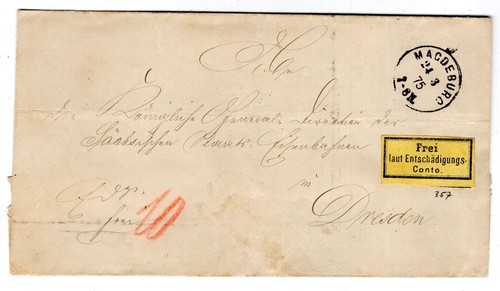 MAGDEBURG
24 3
75
7-8 V.
An
Die Königliche General-Direction der
Sächsischen Staats-Eisenbahnen
in
Dresden
Frei
laut Entschädigungs-
Conto.
357
frei
10